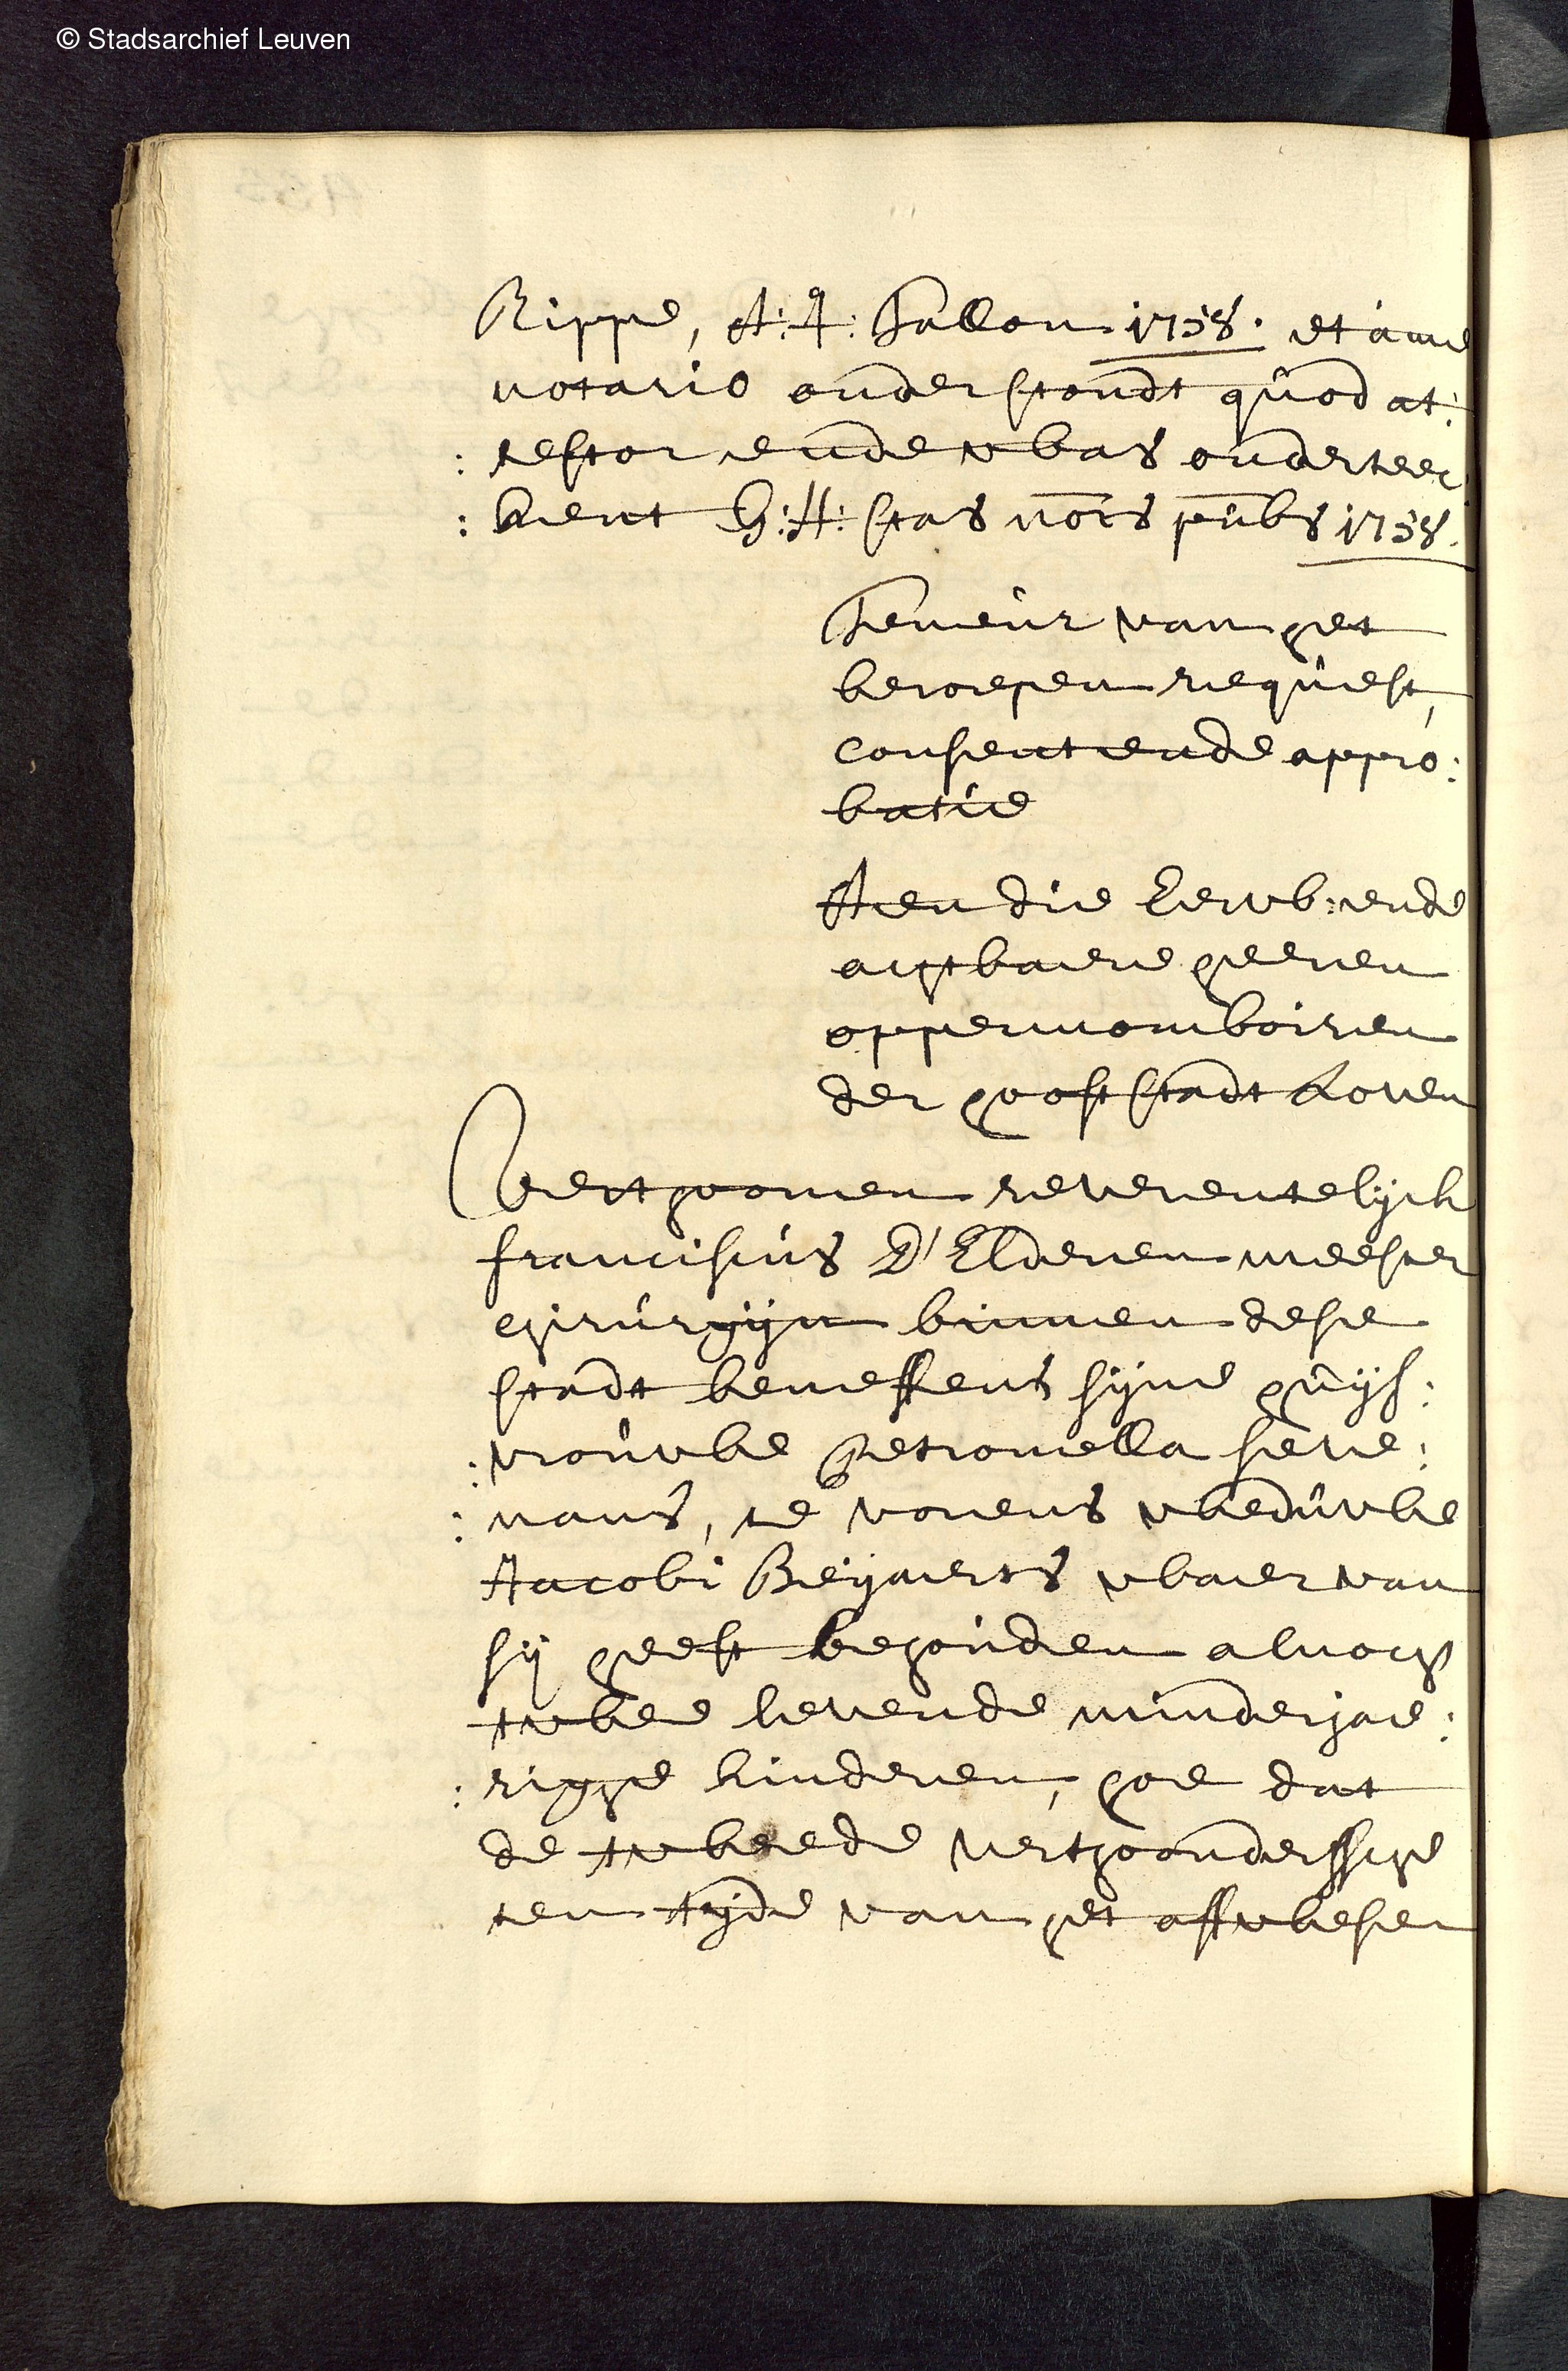 © Stadsarchief Leuven
Rippe, A: J: Tallon 1738. et a me
notario onderstondt quod at:
: testor ende was onderteec
: kent G: H: Stas no̅ris pu̅bs 1738.
Teneur van het
beroepen request,
consent ende appro:
batie
Aen die Eerw: ende
achtbaere heeren
oppermomboiren
der hooftstadt Loven
Verthoonen reverentelijck
franciscus D'Elderen meester
chirurgijn binnen dese
stadt beneffens sijne huijs:
: vrouwe Petronella Serve:
: nans, te vorens weduwe
Jacobi Beijaerts waer van
sij heeft behouden alnoch
twee levende minderjae:
: righe kinderen, hoe dat
de tweede verthoonderssche
ten tijde van het afflwesen